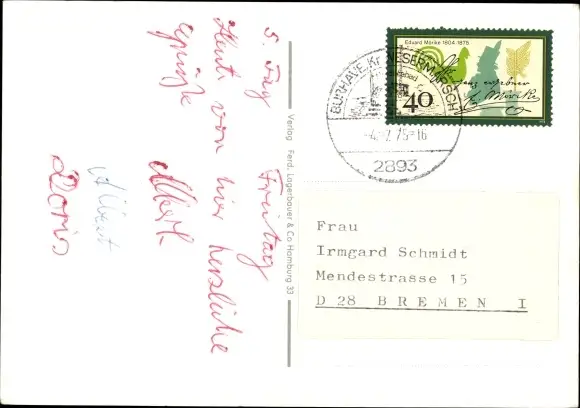 5. Tag Freitag
Heut von hier herzliche
Grüße
Albert
Albert
Doris
Verlag Ferd. Lagerbauer & Co Hamburg 33
Eduard Mörike 1804-1875
40
BURHAVE, KR WESERMARSCH
75-16
2893
Frau
Irmgard Schmidt
Mendestrasse 15
D 28 BREMEN I